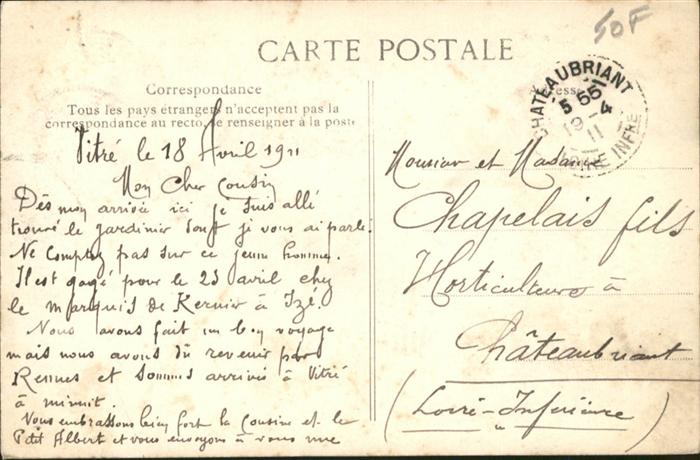 50F
CARTE POSTALE
Correspondance
Tous les pays étrangers n'acceptent pas la
correspondance au recto, se renseigner à la poste
Vitré le 18 Avril 1911
Mon Cher Cousin
Dès mon arrivée ici je suis allé
trouvé le jardinier dont je vous ai parlé.
Ne comptez pas sur ce jeune homme.
Il est gagé pour le 23 avril chez
le marquis de Kernier à Izé.
Nous avons fait un bon voyage
mais nous avons dû revenir par
Rennes et sommes arrivés à Vitré
à minuit.
Vous embrassons bien fort la Cousine et le
Petit Albert et vous envoyons à vous une
Adresse
CHATEAUBRIANT
5 55
4
11
INFRE
Monsieur et Madame
Chapelais fils
Horticulteurs à
Châteaubriant
(Loire-Inférieure)